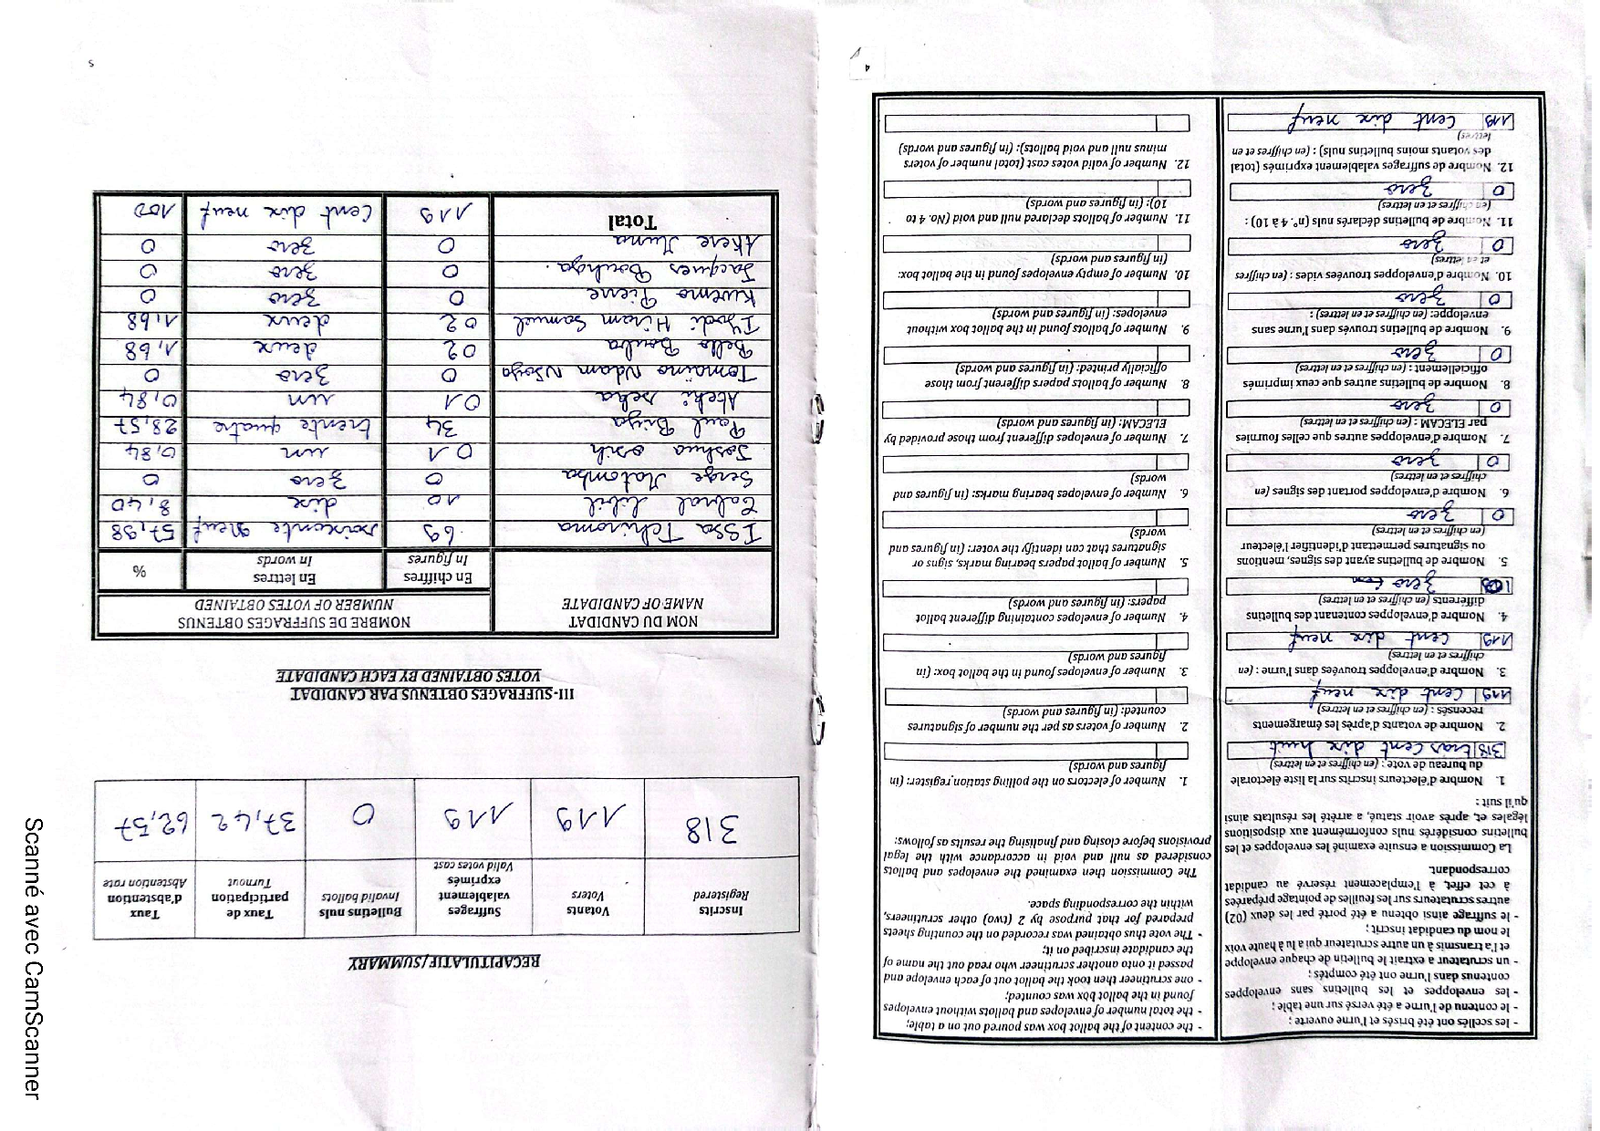 4
- les scellés ont été brisés et l'urne ouverte ;
- le contenu de l'urne a été versé sur une table ;
- les enveloppes et les bulletins sans enveloppes
contenus dans l'urne ont été comptés ;
- un scrutateur a extrait le bulletin de chaque enveloppe
et l'a transmis à un autre scrutateur qui a lu à haute voix
le nom du candidat inscrit ;
- le suffrage ainsi obtenu a été porté par les deux (02)
autres scrutateurs sur les feuilles de pointage préparées
à cet effet, à l'emplacement réservé au candidat
correspondant.
La Commission a ensuite examiné les enveloppes et les
bulletins considérés nuls conformément aux dispositions
légales et, après avoir statué, a arrêté les résultats ainsi
qu'il suit :
1. Nombre d'électeurs inscrits sur la liste électorale
du bureau de vote : (en chiffres et en lettres)
318 trois cent dix huit
2. Nombre de votants d'après les émargements
recensés : (en chiffres et en lettres)
119 Cent dix neuf
3. Nombre d'enveloppes trouvées dans l'urne : (en
chiffres et en lettres)
119 Cent dix neuf
4. Nombre d'enveloppes contenant des bulletins
différents (en chiffres et en lettres)
zero
5. Nombre de bulletins ayant des signes, mentions
ou signatures permettant d'identifier l'électeur
(en chiffres et en lettres)
0 zero
6. Nombre d'enveloppes portant des signes (en
chiffres et en lettres)
0 zero
7. Nombre d'enveloppes autres que celles fournies
par ELECAM : (en chiffres et en lettres)
0 zero
8. Nombre de bulletins autres que ceux imprimés
officiellement : (en chiffres et en lettres)
0 zero
9. Nombre de bulletins trouvés dans l'urne sans
enveloppe: (en chiffres et en lettres) :
0 zero
10. Nombre d'enveloppes trouvées vides : (en chiffres
et en lettres)
0 zero
11. Nombre de bulletins déclarés nuls (n°. 4 à 10) :
(en chiffres et en lettres)
0 zero
12. Nombre de suffrages valablement exprimés (total
des votants moins bulletins nuls) : (en chiffres et en
lettres)
119 Cent dix neuf
- the content of the ballot box was poured out on a table;
- the total number of envelopes and ballots without envelopes
found in the ballot box was counted;
- one scrutineer then took the ballot out of each envelope and
passed it onto another scrutineer who read out the name of
the candidate inscribed on it;
- The vote thus obtained was recorded on the counting sheets
prepared for that purpose by 2 (two) other scrutineers,
within the corresponding space.
The Commission then examined the envelopes and ballots
considered as null and void in accordance with the legal
provisions before closing and finalising the results as follows:
1. Number of electors on the polling station register: (in
figures and words)
2. Number of voters as per the number of signatures
counted: (in figures and words)
3. Number of envelopes found in the ballot box: (in
figures and words)
4. Number of envelopes containing different ballot
papers: (in figures and words)
5. Number of ballot papers bearing marks, signs or
signatures that can identify the voter: (in figures and
words)
6. Number of envelopes bearing marks: (in figures and
words)
7. Number of envelopes different from those provided by
ELECAM: (in figures and words)
8. Number of ballots papers different from those
officially printed: (in figures and words)
9. Number of ballots found in the ballot box without
envelopes: (in figures and words)
10. Number of empty envelopes found in the ballot box:
(in figures and words)
11. Number of ballots declared null and void (No. 4 to
10): (in figures and words)
12. Number of valid votes cast (total number of voters
minus null and void ballots): (in figures and words)
RECAPITULATIF/SUMMARY
Inscrits Registered | Votants Voters | Suffrages valablement exprimés Valid votes cast | Bulletins nuls Invalid ballots | Taux de participation Turnout | Taux d'abstention Abstention rate
318 | 119 | 119 | 0 | 37,42 | 62,57
III-SUFFRAGES OBTENUS PAR CANDIDAT
VOTES OBTAINED BY EACH CANDIDATE
NOM DU CANDIDAT | NOMBRE DE SUFFRAGES OBTENUS
NAME OF CANDIDATE | NUMBER OF VOTES OBTAINED
En chiffres | En lettres | %
In figures | In words
Issa Tchiroma | 69 | soixante neuf | 57,98
Cabral Libii | 10 | dix | 8,40
Serge Matomba | 0 | zero | 0
Joshua osih | 01 | un | 0,84
Paul Biya | 34 | trente quatre | 28,57
Ateki Seta | 01 | un | 0,84
Tomaino Ndam Njoya | 0 | zero | 0
Bello Bouba | 02 | deux | 1,68
Iyodi Hiram Samuel | 02 | deux | 1,68
Kwemo Pierre | 0 | zero | 0
Jacques Bouhoga. | 0 | zero | 0
Akere Muna | 0 | zero | 0
Total | 119 | Cent dix neuf | 100
5
Scanné avec CamScanner